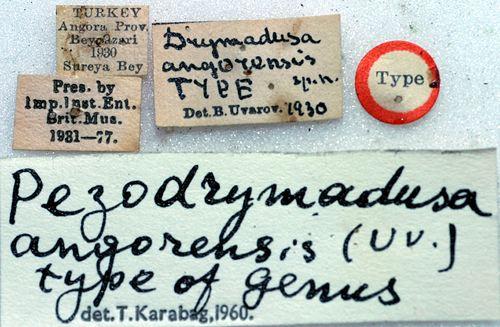 TURKEY
Angora Prov.
Beypazari
1930
Sureya Bey
Pres. by
Imp.Inst.Ent.
Brit.Mus.
1931—77.
Drymadusa
angorensis
TYPE sp.n.
Det.B.Uvarov. 1930
Type
Pezodrymadusa
angorensis (Uv.)
type of genus
det.T.Karabag,1960.